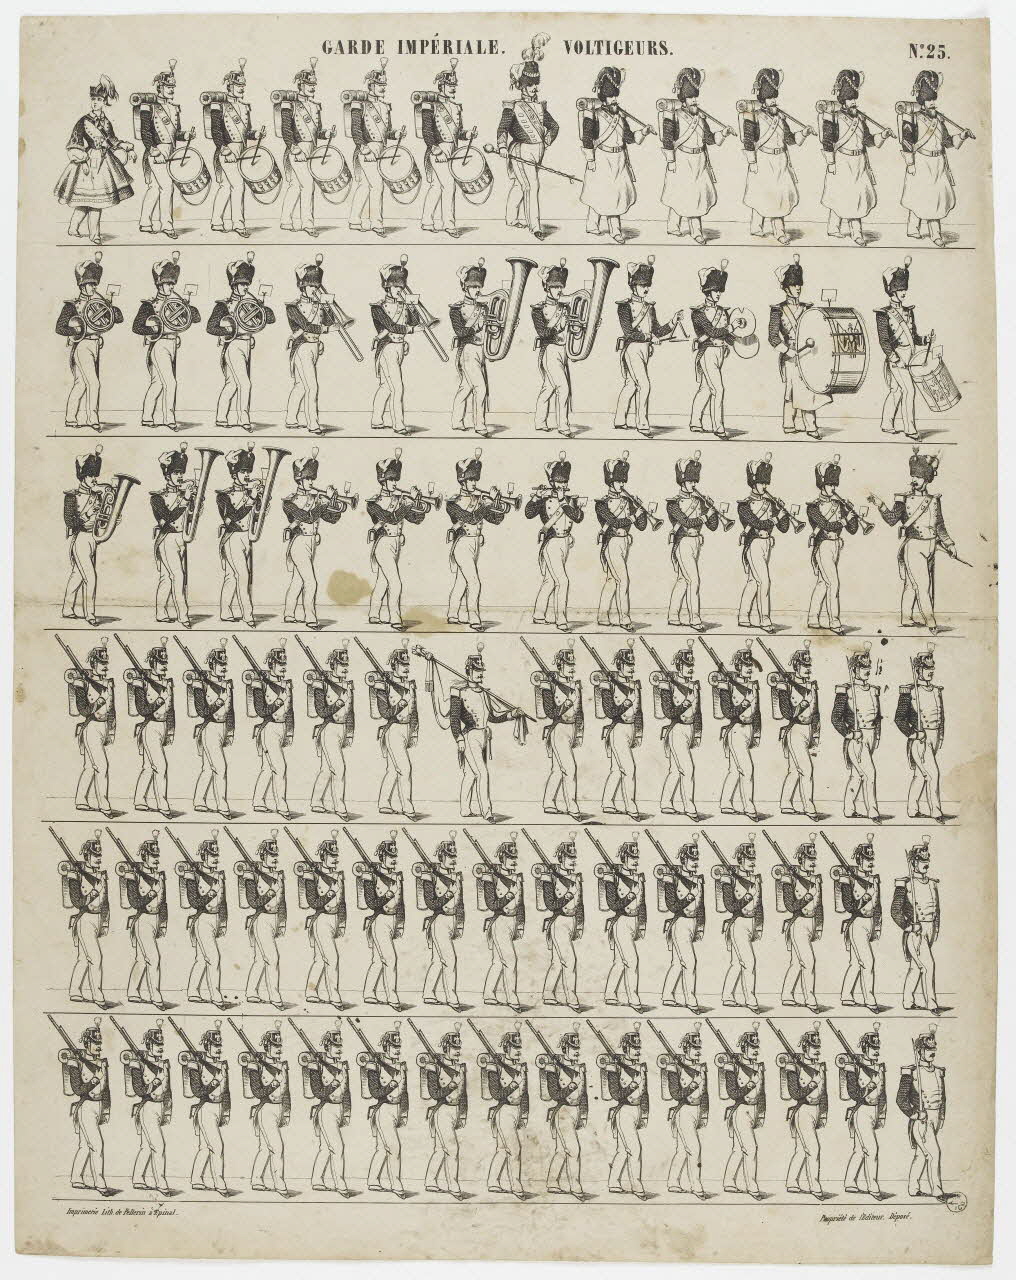 GARDE IMPÉRIALE. VOLTIGEURS. Nº 25.
Imprimerie Lith. de Pellerin à Epinal.
Propriété de l'Editeur. Déposé.